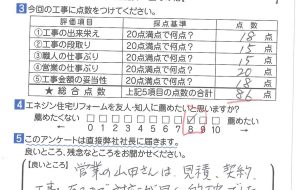 3 今回の工事に点数をつけてください。
評価項目 採点基準 点数
①工事の出来栄え 20点満点で何点? 18点
②工事の段取り 20点満点で何点? 15点
③職人の仕事ぶり 20点満点で何点? 15点
④営業の仕事ぶり 20点満点で何点? 20点
⑤工事金額の妥当性 20点満点で何点? 18点
★総合点数 上記5項目の点数の合計 86点
4 エネジン住宅リフォームを友人・知人に薦めたいと思いますか?
薦めたくない 薦めたい
0 1 2 3 4 5 6 7 8 9 10
5 このアンケートは直接弊社社長に届きます。
良いところ、残念なところをお聞かせください。
【良いところ】営業の山田さんは、見積、契約、